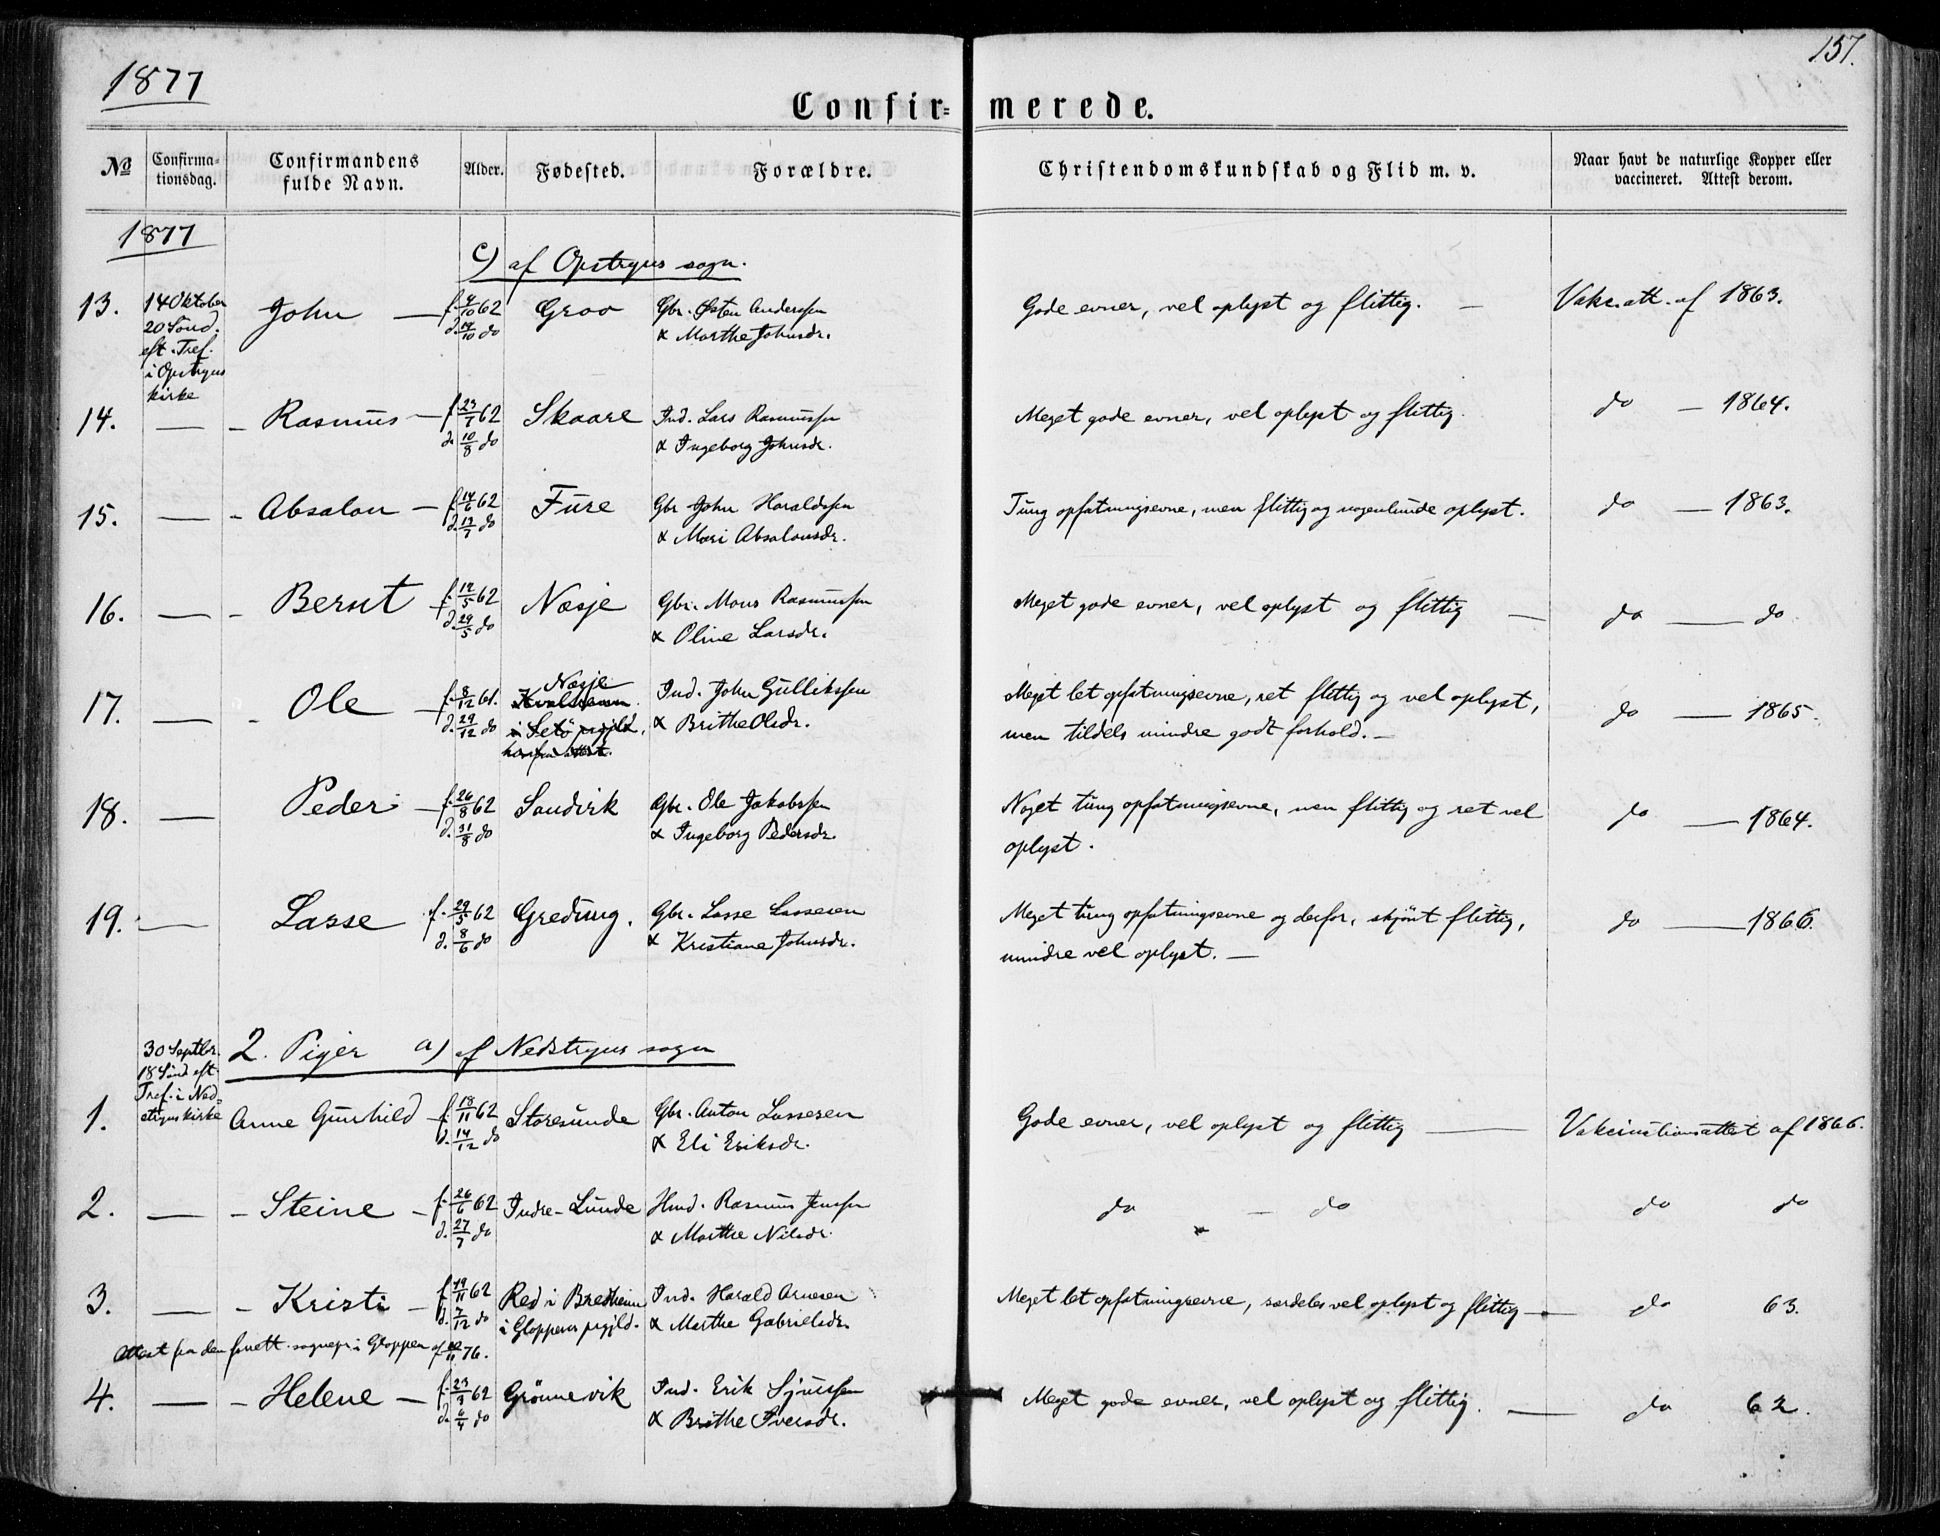 1877
157.
Confir= merede.
No
Confirma-
tionsdag.
Confirmandens
fulde Navn.
Alder.
Fødested.
Forældre.
Christendomskundskab og Flid m. v.
Naar havt de naturlige Kopper eller
vaccineret. Attest derom.
1877
c) af Opstryns sogn.
13. 14 Oktober John — f. 4/10 62 Grov Gbr. Østen Anderssen Gode evner, vel oplyst og flittig. — Vakc. att. af 1863.
20 Sönd. d. 19/10 do & Marthe Johnsdr.
eft. Tref.
i Opstryns
kirke
14. — - Rasmus — f. 23/7 62 Skaare Ind. Lars Rasmussen Meget gode evner, vel oplyst og flittig. do — 1864.
d. 10/8 do & Ingeborg Johnsdr.
15. — - Absalon — f. 14/6 62 Fure Gbr. John Haraldssen Tung opfatningsevne, men flittig og nogenlunde oplyst. do — 1863.
d. 13/7 do & Mari Absalonsdr.
16. — - Bernt — f. 12/5 62 Næsje Gbr. Mons Rasmussen Meget gode evner, vel oplyst og flittig — do — do
d. 29/5 do & Oline Larsdr.
17. — - Ole — f. 8/12 61. Næsje Ind. John Gullikssen Meget let opfatningsevne, ret flittig og vel oplyst, do — 1865.
d. 29/12 do i Selö prgjld. & Brithe Olsdr. men tildels mindre godt forhold. —
18. — Peder — f. 26/8 62 Sandvik Gbr. Ole Jakobssen Noget tung opfatningsevne, men flittig og ret vel do — 1864.
d. 31/8 do & Ingeborg Pedersdr. oplyst.
19. — Lasse f. 29/5 62 Greding. Gbr. Lasse Lassesen Meget tung opfatningsevne og derfor, skjönt flittig, do — 1866.
d. 8/6 do & Kristiane Johnsdr. mindre vel oplyst. —
30 Septbr. 2. Piger a) af Nedstryns sogn
18 Sönd eft
Tref. i Ned=
stryns kirke
1. Anne Gunhild — f. 18/11 62 Storesunde Gbr. Anton Lassesen Gode evner, vel oplyst og flittig — Vakcinationsattest af 1866.
d. 14/12 do & Eli Eriksdr.
2. — - Steine — f. 26/6 62 Indre-Lunde Hmd. Rasmus Jenssen do — do do do
d. 27/7 do & Marthe Nilsdr.
3. — - Kristi — f. 19/11 62 Red i Bredheim Ind. Harald Arnesen Meget let opfatningsevne, særdeles vel oplyst og flittig — do 63.
d. 7/12 do i Gloppens prgjld. & Marthe Gabrielsdr.
Attest fra den sognepr. i Gloppen af 76.
4. — - Helene — f. 23/3 62 Grönnevik Ind. Erik Sjurssen Meget gode evner, vel oplyst og flittig. — do 62.
d. 6/4 do & Brithe Iversdr.